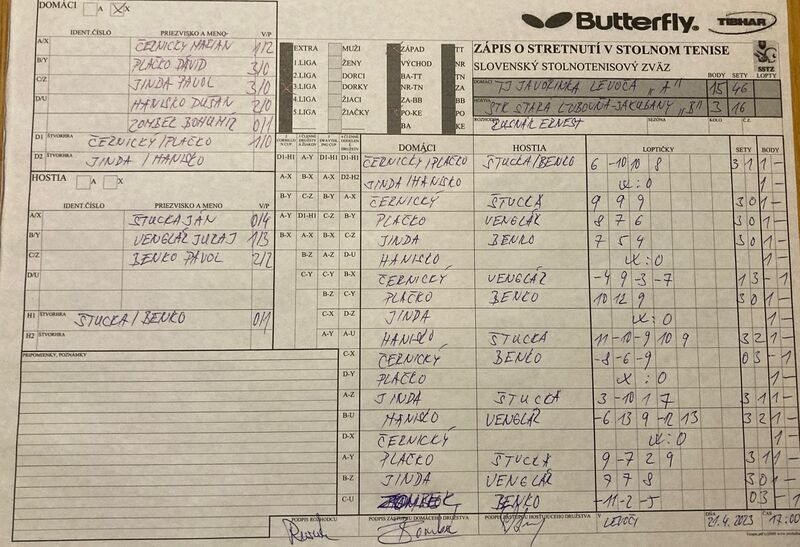 DOMÁCI A X
IDENT.ČÍSLO PRIEZVISKO A MENO V/P
A/X ČERNICKÝ MARIAN 1/2
B/Y PLAČKO DÁVID 3/0
C/Z JINDA PAVOL 3/0
D/U HANISKO DUŠAN 2/0
ZOMBEK BOHUMIR 0/1
D1 ŠTVORHRA ČERNICKÝ/PLAČKO 1/0
D2 ŠTVORHRA JINDA/HANISKO
HOSTIA A X
IDENT.ČÍSLO PRIEZVISKO A MENO V/P
A/X ŠTUCKA JÁN 0/4
B/Y VENGLÁŘ JURAJ 1/3
C/Z BENKO PAVOL 2/2
D/U
H1 ŠTVORHRA ŠTUCKA/BENKO 0/1
H2 ŠTVORHRA
PRIPOMIENKY, POZNÁMKY
Butterfly. TIBHAR
EXTRA MUŽI ZÁPAD TT
1.LIGA ŽENY VÝCHOD NR
2.LIGA DORCI BA-TT TN
3.LIGA DORKY NR-TN ZA
4.LIGA ŽIACI ZA-BB BB
5.LIGA ŽIAČKY PO-KE PO
BA KE
ZÁPIS O STRETNUTÍ V STOLNOM TENISE
SLOVENSKÝ STOLNOTENISOVÝ ZVÄZ
SSTZ
BODY SETY LOPTY
DOMÁCI TJ JAVORINKA LEVOČA "A" 15 46
HOSTIA STK STARÁ ĽUBOVŇA-JAKUBANY "B" 3 16
ROZHODCA SEZÓNA KOLO Č.Z.
ERNEST
DOMÁCI HOSTIA LOPTIČKY SETY BODY
D1-H1 A-Y D1-H1 D1-H1 ČERNICKÝ/PLAČKO ŠTUCKA/BENKO 6 -10 10 8 3 1 1 -
A-X B-X A-X D2-H2 JINDA/HANISKO w:0 1 -
B-Y C-Z B-Y A-X ČERNICKÝ ŠTUCKA 9 9 9 3 0 1 -
A-Y D1-H1 C-Z B-Y PLAČKO VENGLÁŘ 8 7 6 3 0 1 -
B-X A-X B-X C-Z JINDA BENKO 7 5 4 3 0 1 -
B-Z A-Z D-U HANISKO w:0 1 -
C-Y C-Y B-X ČERNICKÝ VENGLÁŘ -4 9 -3 -7 1 3 - 1
B-Z C-Y PLAČKO BENKO 10 12 9 3 0 1 -
C-X D-Z JINDA w:0 1 -
A-Y A-U HANISKO ŠTUCKA 11 -10 -9 10 9 3 2 1 -
C-X ČERNICKÝ BENKO -8 -6 -9 0 3 - 1
D-Y PLAČKO w:0 1 -
A-Z JINDA ŠTUCKA 3 -10 1 7 3 1 1 -
B-U HANISKO VENGLÁŘ -6 13 9 -12 13 3 2 1 -
D-X ČERNICKÝ w:0 1 -
A-Y PLAČKO ŠTUCKA 9 -7 2 9 3 1 1 -
B-Z JINDA VENGLÁŘ 7 7 8 3 0 1 -
C-U BENKO -11 -2 -5 0 3 - 1
PODPIS ROZHODCU PODPIS ZÁSTUPCU DOMÁCEHO DRUŽSTVA PODPIS ZÁSTUPCU HOSŤUJÚCEHO DRUŽSTVA V LEVOČI DŇA 21.4.2023 ČAS 17:00